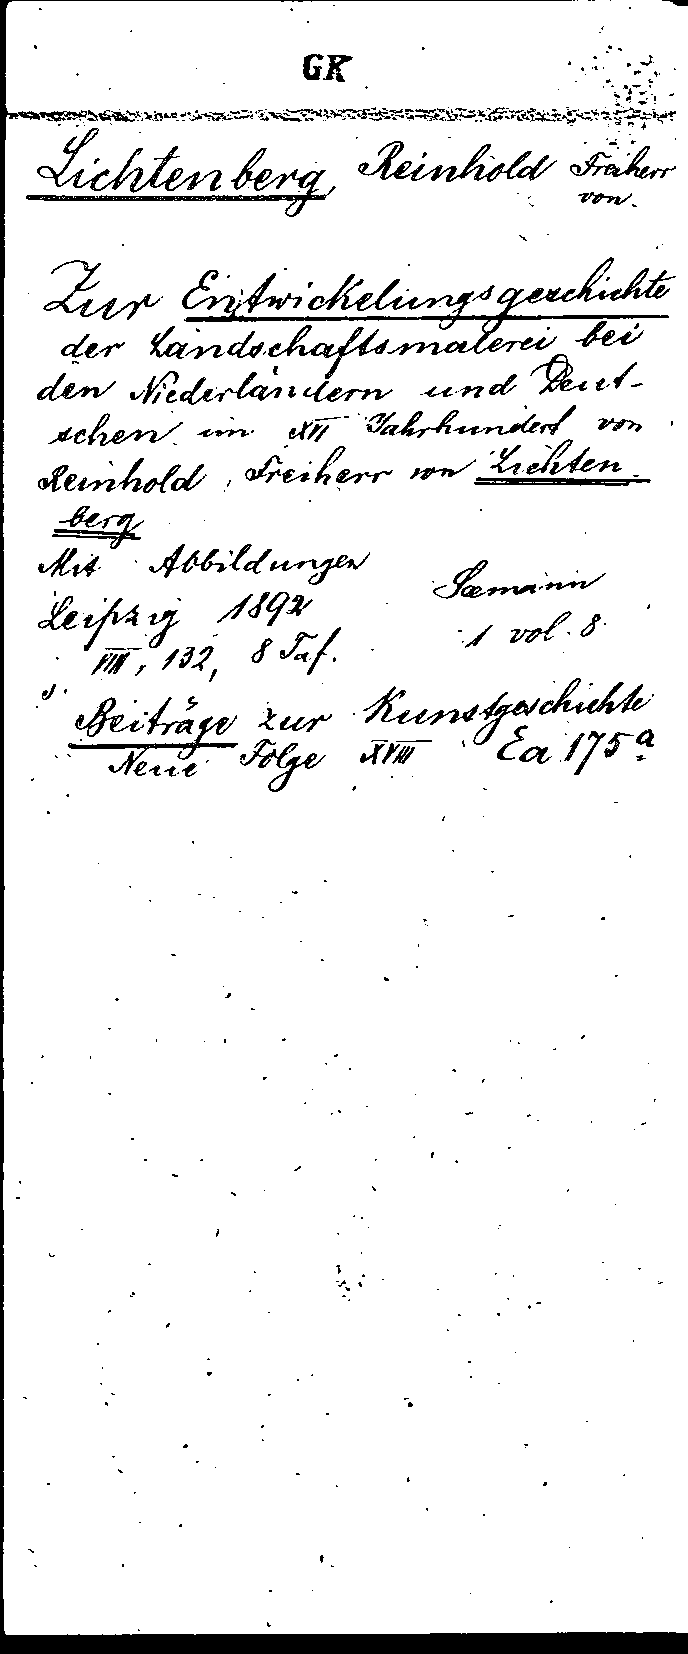 GK
Lichtenberg, Reinhold Freiherr
von.
Zur Entwickelungsgeschichte
der Landschaftsmalerei bei
den Niederländern und Deut-
schen im XVI Jahrhundert von
Reinhold, Freiherr von Lichten
berg
Mit Abbildungen
Leipzig 1892 Seemann
VIII, 132, 8 Taf. 1 vol. 8.
s.
Beiträge zur Kunstgeschichte
Neue Folge XVIII Ea 175a